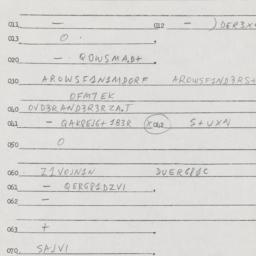 011 — 012 — ) DER3X
013 O .
020 — . QOWSMAD+
030 AROWSF1N1MDORF AROWSF1ND3RS+
OFM7EK
040 OVD3RAND3R3RZA.T
041 — QAKREJG+1B3R X042 S+UXN
050 O
060 Z1VOJN1N 3VERG81C
061 — QERG81DZVI
062 —
063 +
070 SAJVI